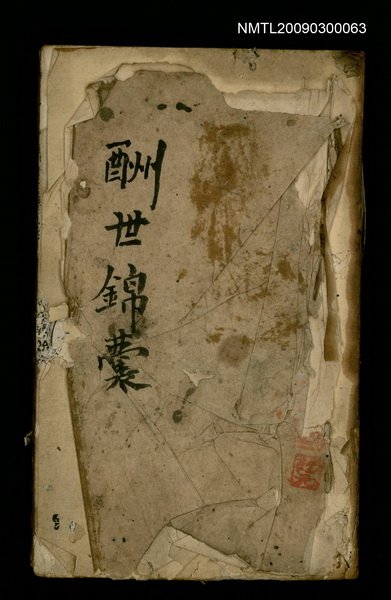 NMTL20090300063
酬世錦囊